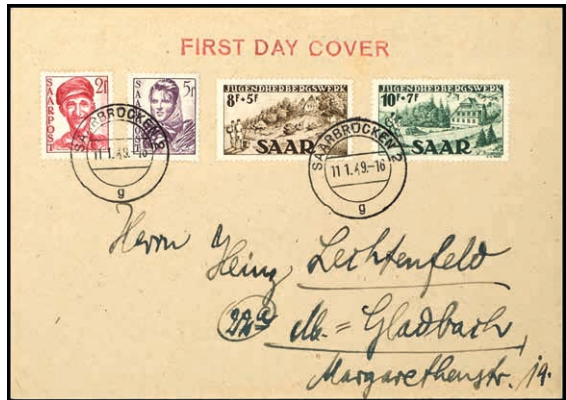 FIRST DAY COVER
2f
SAARPOST
5f
SAARPOST
JUGENDHERBERGSWERK
8F+5F
SAAR
JUGENDHERBERGSWERK
10F+7F
SAAR
SAARBRÜCKEN 2
11 1.49.-16
g
SAARBRÜCKEN 2
11 1.49.-16
g
Herrn
Heinz Lichtenfeld
22a M.=Gladbach,
Margarethenstr. 19.